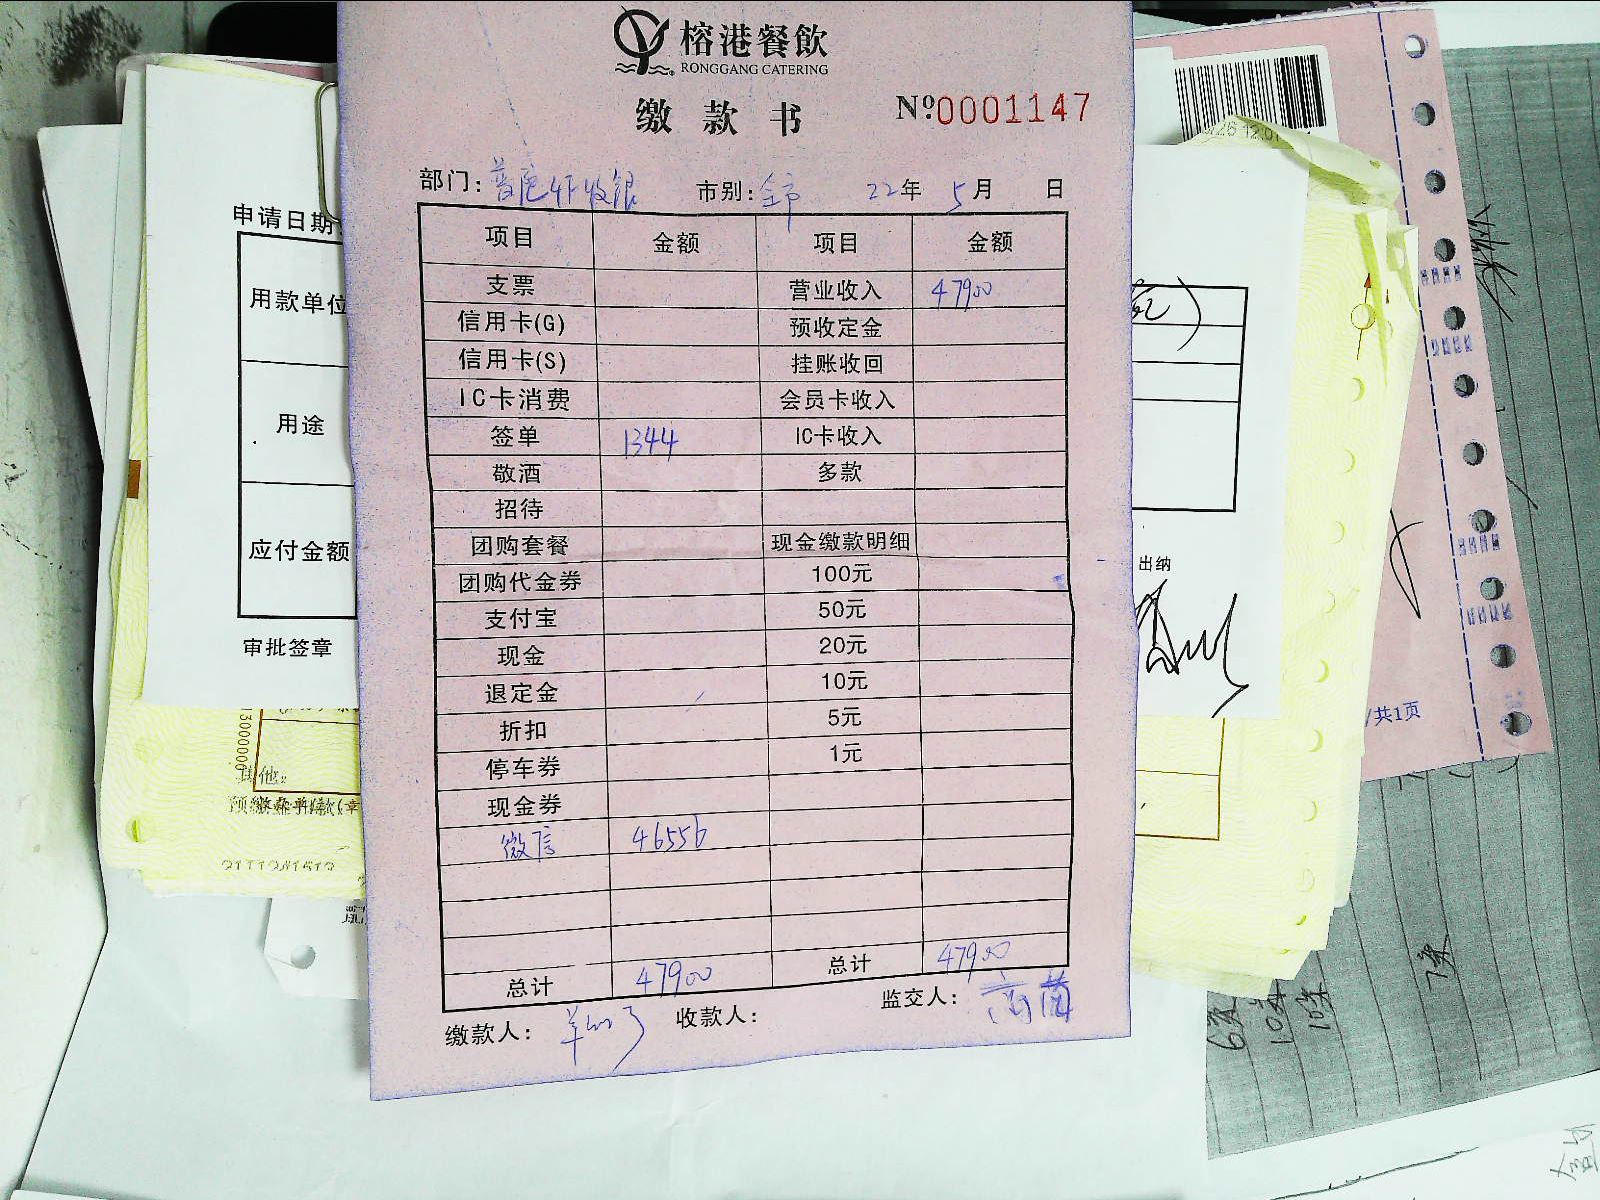 榕港餐飲
RONGGANG CATERING
缴款书 Nº:0001147
部门: 收银 市别: 全市 22年 5月 日
项目 金额 项目 金额
支票 营业收入 47900
信用卡(G) 预收定金
信用卡(S) 挂账收回
IC卡消费 会员卡收入
签单 1344 IC卡收入
敬酒 多款
招待
团购套餐 现金缴款明细
团购代金券 100元
支付宝 50元
现金 20元
退定金 10元
折扣 5元
停车券 1元
现金券
微信 46556
总计 47900 总计 47900
缴款人: 收款人: 监交人:
申请日期
用款单位
用途
应付金额
审批签章
出纳
其他。
共1页